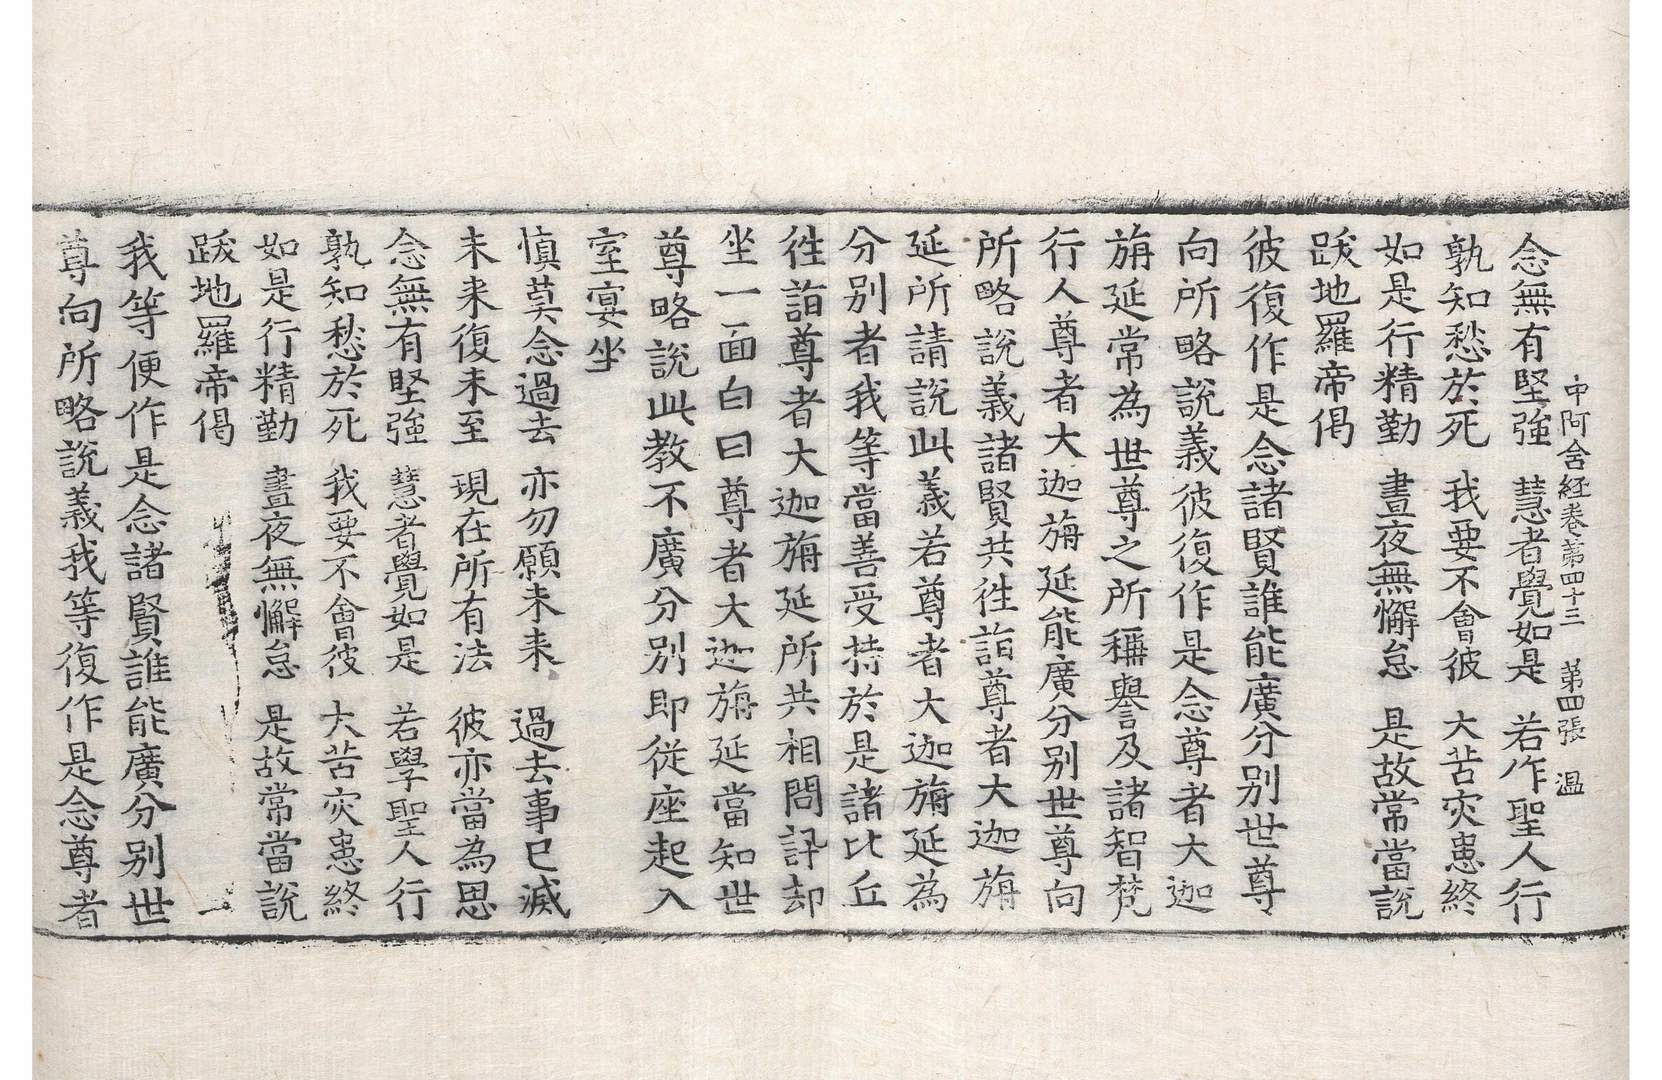 中阿含経卷第四十三 第四張 溫
念無有堅強 慧者覺如是 若作聖人行
孰知愁於死 我要不會彼 大苦灾患終
如是行精勤 晝夜無懈怠 是故常當說
跋地羅帝偈
彼復作是念諸賢誰能廣分別世尊
向所略說義彼復作是念尊者大迦
旃延常為世尊之所稱譽及諸智梵
行人尊者大迦旃延能廣分別世尊向
所略說義諸賢共往詣尊者大迦旃
延所請說此義若尊者大迦旃延為
分別者我等當善受持於是諸比丘
往詣尊者大迦旃延所共相問訊却
坐一面白曰尊者大迦旃延當知世
尊略說此教不廣分別即從座起入
室宴坐
慎莫念過去 亦勿願未来 過去事已滅
未来復未至 現在所有法 彼亦當為思
念無有堅強 慧者覺如是 若學聖人行
孰知愁於死 我要不會彼 大苦灾患終
如是行精勤 晝夜無懈怠 是故常當說
跋地羅帝偈
我等便作是念諸賢誰能廣分別世
尊向所略說義我等復作是念尊者